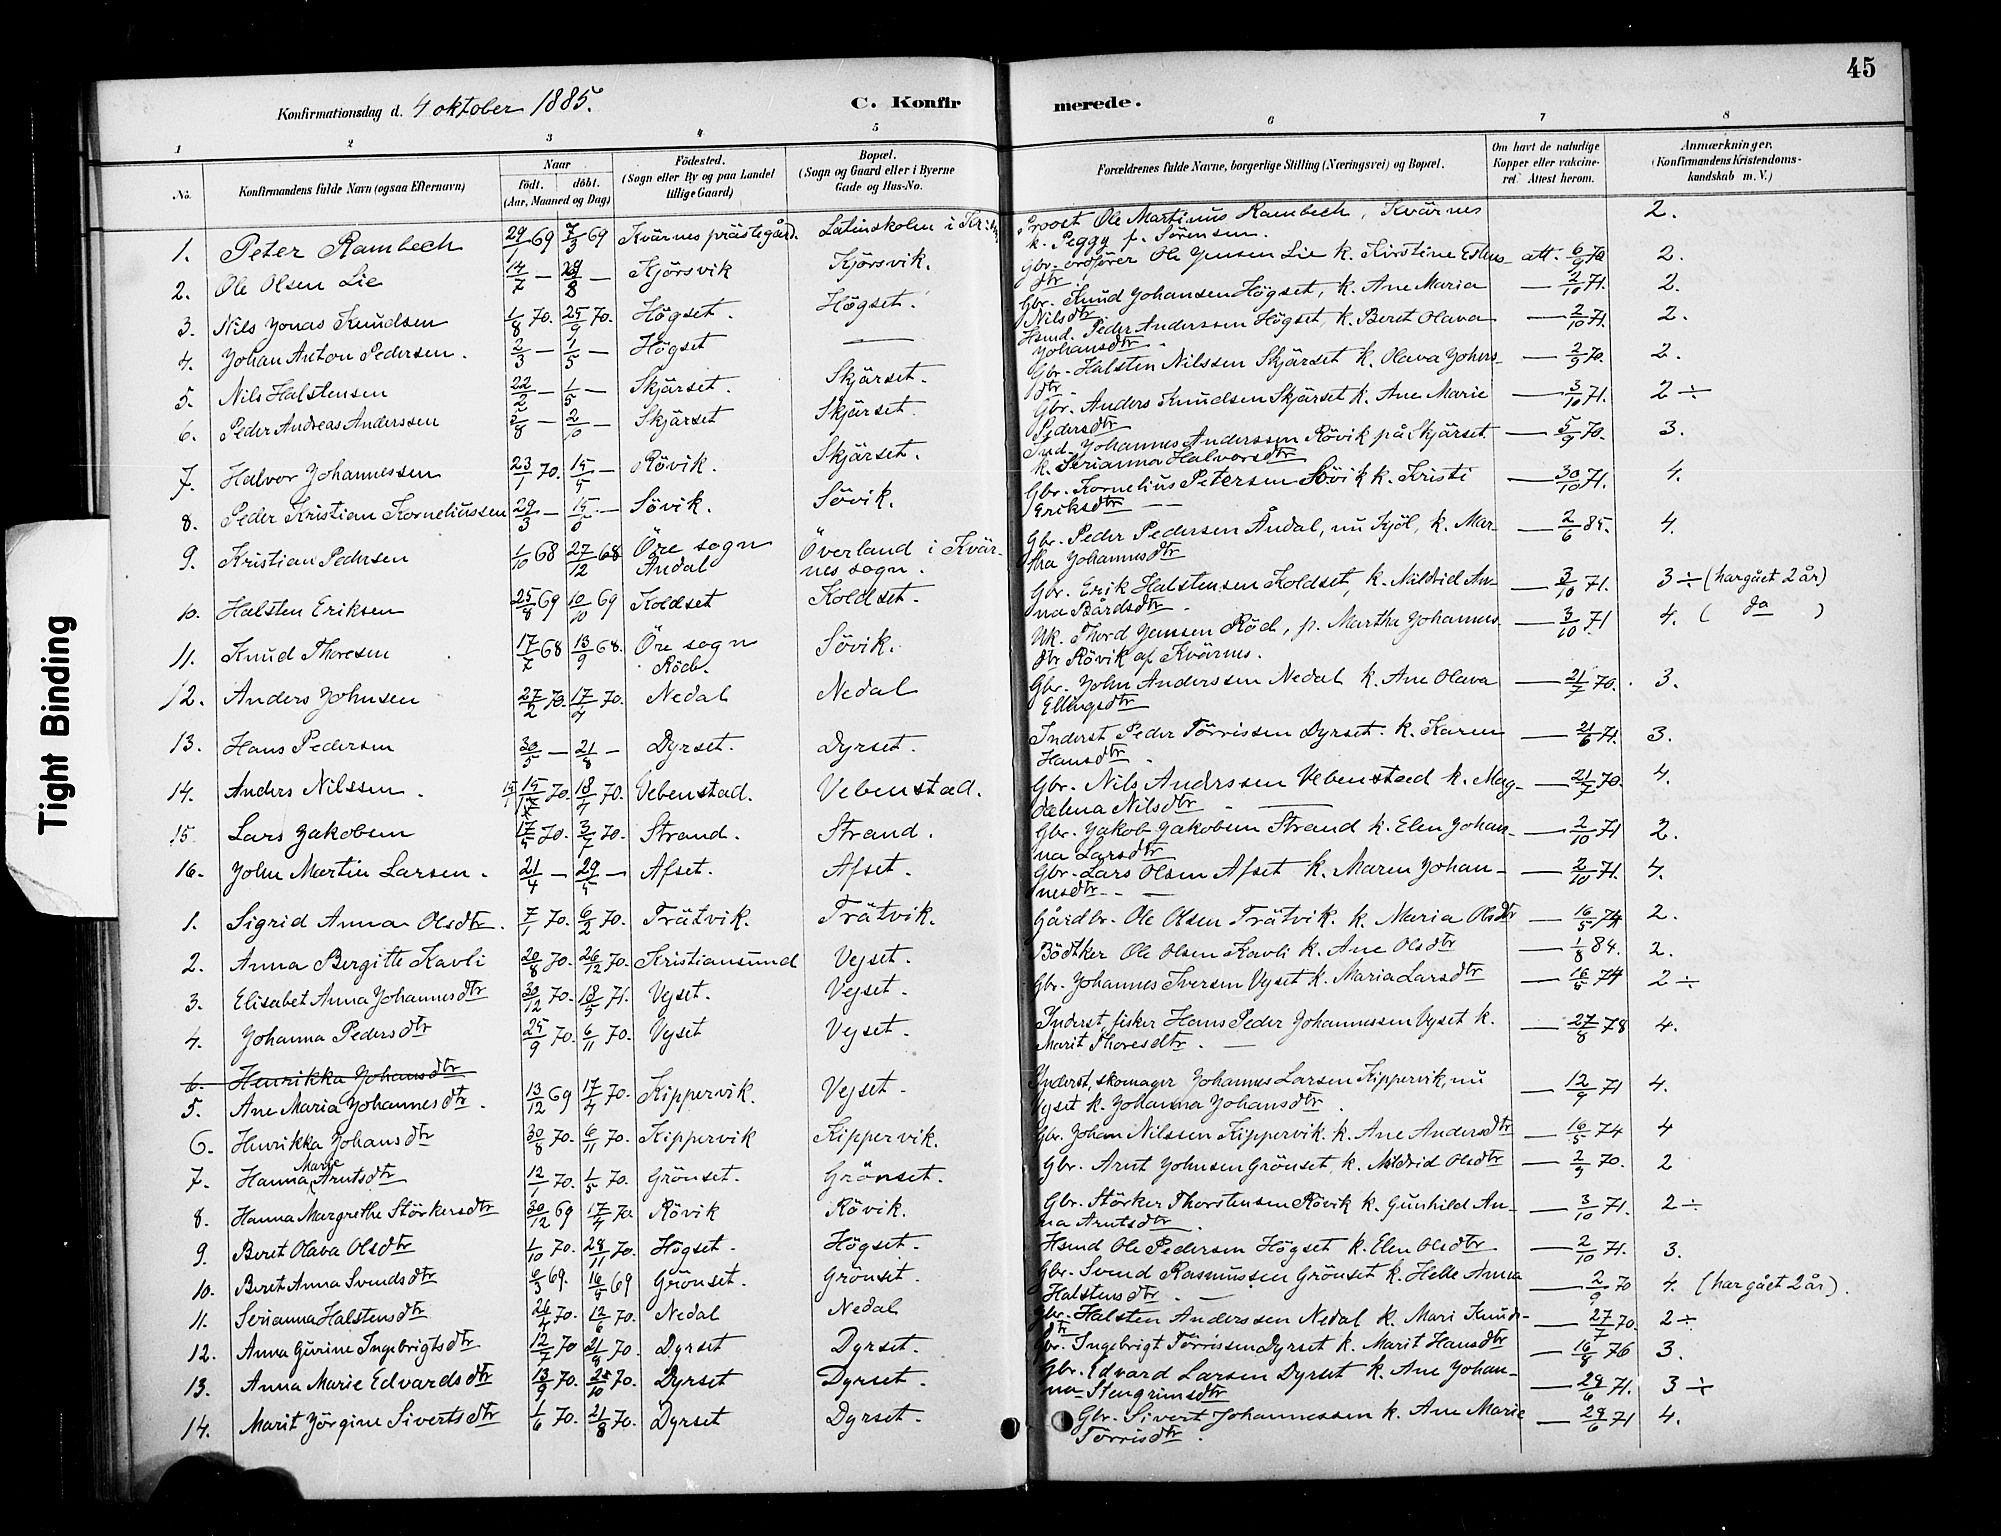 45
Konfirmationsdag d. 4 oktober 1885.
C. Konfirmerede.
1 2 3 4 5 6 7 8
No. Konfirmandens fulde Navn (ogsaa Efternavn) Naar födt. döbt. (Aar, Maaned og Dag) Födested. (Sogn eller By og paa Landet tillige Gaard) Bopæl. (Sogn og Gaard eller i Byerne Gade og Hus-No. Forældrenes fulde Navne, borgerlige Stilling (Næringsvei) og Bopæl. Om havt de naturlige Kopper eller vakcineret. Attest herom. Anmærkninger, (Konfirmandens Kristendomskundskab m. V.)
1. Peter Rambech 29/1 69 7/3 69 Kvärnes prästegård. Latinskolen i Kr. Provst Ole Martinus Rambech, Kvärnes k. Peggy f. Sörensen. 2.
2. Ole Olsen Lie 14/7 — /8 — Kjörsvik Kjörsvik. Gbr. ordförer Ole Jensen Lie k. Kirstine dtr. att. 6/9 70 2.
3. Nils Jonas Knudsen 1/8 70. 25/9 70. Högset. Högset. Gbr. Knud Johansen Högset, k. Ane Maria Nilsdtr — 2/10 71. 2.
4. Johan Anton Pedersen. 2/3 — 1/5 — Högset — Hsmd. Peder Anderssen Högset, k. Beret Olava Johansdtr. — 2/10 71. 2.
5. Nils Halstensen 22/2 — 1/5 — Skjärset. Skjärset. Gbr. Halsten Nilssen Skjärset k. Olava dtr — 2/9 70. 2.
6. Peder Andreas Anderssen 5/8 — 2/10 — Skjärset Skjärset. Gbr. Anders Knudsen Skjärset k. Ane Marie Pedersdtr — 3/10 71. 2 ÷
7. Halvor Johannessen 23/1 70. 15/5 — Rövik. Skjärset. Ind. Johannes Anderssen Rövik på Skjärset k. Serianna Halvorsdtr — 5/9 70. 3.
8. Peder Kristian Korneliussen 29/3 — — Sövik. Sövik. Gbr. Kornelius Petersen Sövik k. Kristi Eriksdtr — — 30/10 71. 4.
9. Kristian Pedersen 1/10 68 27/12 68 Öre sogn Åndal Överland i Kvärnes sogn. Gbr. Peder Pedersen Åndal, nu Kjöl, k. Martha Johannesdtr — 2/6 85. 4.
10. Halsten Eriksen 25/8 69 10/10 69 Koldset Koldset. Gbr. Erik Halstensen Koldset, k. Mildrid Anna Bårdsdtr. — 3/10 71. 3 ÷ (har gået 2 år)
11. Knud Thoresen 17/7 68 13/9 68. Öre sogn Röd. Sövik. Uk. Thord Jenssen Röd, p. Martha Johannesdtr Rövik af Kvärnes. — 3/10 71 4. ( do )
12. Anders Johnsen 27/2 70. 17/4 70. Nedal Nedal Gbr. John Anderssen Nedal k. Ane Olava Ellingsdtr — 21/7 70. 3.
13. Hans Pedersen 30/5 — 21/8 — Dyrset. Dyrset. Inderst Peder Törrissen Dyrset. k. Karen Hansdtr. — 21/6 71. 3.
14. Anders Nilssen. 70. 18/4 70. Vebenstad. Vebenstad. Gbr. Nils Anderssen Vebenstad k. Magdalena Nilsdtr — — 21/7 70. 4.
15. Lars Jakobsen 17/5 70. 3/7 70. Strand. Strand. Gbr. Jakob Jakobsen Strand k. Elen Johanna Larsdtr — 2/10 71 2.
16. John Martin Larsen. 21/4 — 29/5 — Afset. Afset. Gbr. Lars Olsen Afset k. Maren Johannesdtr — — 2/10 71. 4.
1. Sigrid Anna Olsdtr. 7/1 70. 6/2 70. Trätvik. Trätvik. Gårdbr. Ole Olsen Trätvik. k. Maria Olsdtr — 16/5 74 2.
2. Anna Bergitte Kavli 20/8 70. 26/12 70. Kristiansund Vejset. Bödtker Ole Olsen Kavli k. Ane Olsdtr — 1/8 84. 2.
3. Elisabet Anna Johannesdtr 30/12 70. 18/5 71. Vejset. Vejset. Gbr. Johannes Iversen Vejset k. Maria Larsdtr — 16/5 74 2 ÷
4. Johanna Pedersdtr 25/9 70. 6/11 70. Vejset Vejset. Inderst, fisker Hans Peder Johannessen Vejset k. Marit Thoresdtr. — — 27/8 78 4.
6. Henrikka Johansdtr
5. Ane Maria Johannesdtr. 13/12 69 17/4 70. Kippervik. Vejset. Inderst, skomager Johannes Larsen Kippervik, nu Vejset k. Johanna Johansdtr. — 12/9 71 4.
6. Henrikka Johansdtr 30/8 70. 6/11 70. Kippervik Kippervik. Gbr. Johan Nilssen Kippervik. k. Ane Andersdtr — 16/5 74 4
7. Hanna Marie Arntsdtr 12/1 70. 1/5 70. Grönset. Grönset. Gbr. Arnt Johnsen Grönset, k. Mildrid Olsdtr — 2/9 70. 2
8. Hanna Margrethe Störkersdtr 30/12 69 17/4 70. Rövik Rövik. Gbr. Störker Thorstensen Rövik k. Gunhild Anna Arntsdtr. — 3/10 71. 2 ÷
9. Beret Olava Olsdtr 1/10 70. 28/11 70. Högset. Högset. Hsmd Ole Pedersen Högset k. Elen Olsdtr — 2/10 71. 3.
10. Beret Anna Svendsdtr 6/3 69. 16/5 69 Grönset. Grönset. Gbr. Svend Rasmussen Grönset k. Helle Anna Halstensdtr. — — 2/9 70 4. (har gået 2 år).
11. Serianna Halstensdtr 70. 12/6 70. Nedal Nedal Gbr. Halsten Anderssen Nedal k. Mari Knudsdtr — 27/7 70. 2 ÷
12. Anna Gurine Ingebrigtsdtr 12/7 70 21/8 70. Dyrset Dyrset. Gbr. Ingebrigt Törrissen Dyrset k. Marit Hansdtr — 16/8 76 3.
13. Anna Marie Edvardsdtr 13/9 70. 70. Dyrset Dyrset. Gbr. Edvard Larsen Dyrset k. Ane Johanna Stengrimsdtr — 29/6 71. 3 ÷
14. Marit Jörgine Sivertsdtr 1/6 70. 21/8 70. Dyrset Dyrset. Gbr. Sivert Johannessen k. Ane Marie Törrisdtr. — 29/6 71 4.
Tight Binding